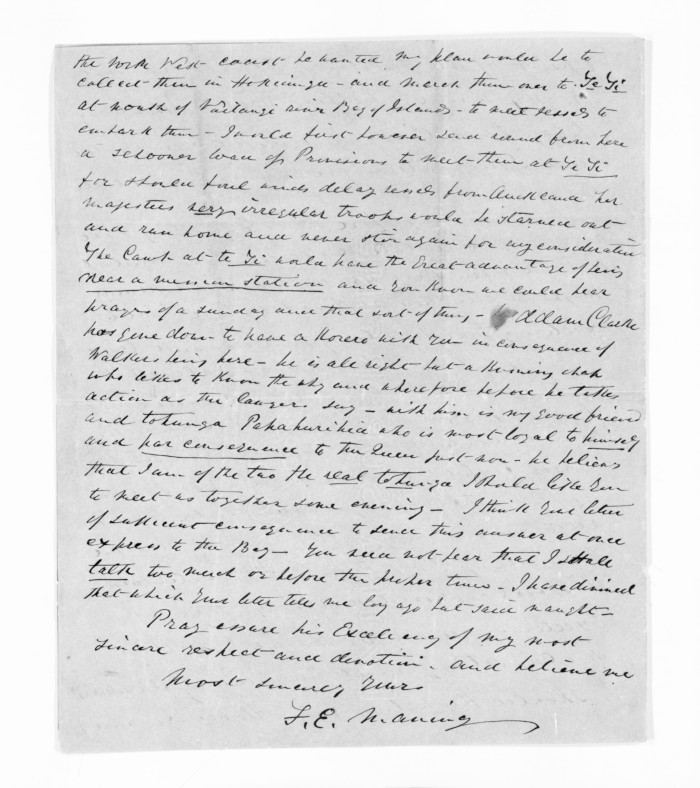 the North West coast be wanted my plan would be to
collect them in Hokianga - and march them over to Te Ti
at mouth of Waitangi river Bay of Islands - to meet vessels to
embark them - I would first however send round from here
a schooner load of Provisions to meet them at Te Ti
for should foul winds delay vessels from Auckland her
majesties very irregular troops would be starved out
and run home and never stir again for any consideration
The Camp at te Ti would have the great advantage of being
near a mission station and you know we could hear
prayers of a sunday and that sort of thing - Adam Clarke
has gone down to have a Korero with you in consequence of
Walkers being here - he is all right but a knowing chap
who likes to know the why and wherefore before he takes
action as the lawyers say - with him is my good friend
and tohunga Papahurihia who is most loyal to himself
and par consequence to the Queen just now - he believes
that I am of the two the real tohunga I should like you
to meet us together some evening - I think your letter
of sufficient consequence to send this answer at once
express to the Bay - You need not fear that I shall
talk too much or before the proper time - I have divined
that which your letter tells me long ago but said naught -
Pray assure his Excelency of my most
sincere respect and devotion - and believe me
Most sincerely yours
F. E. Maning